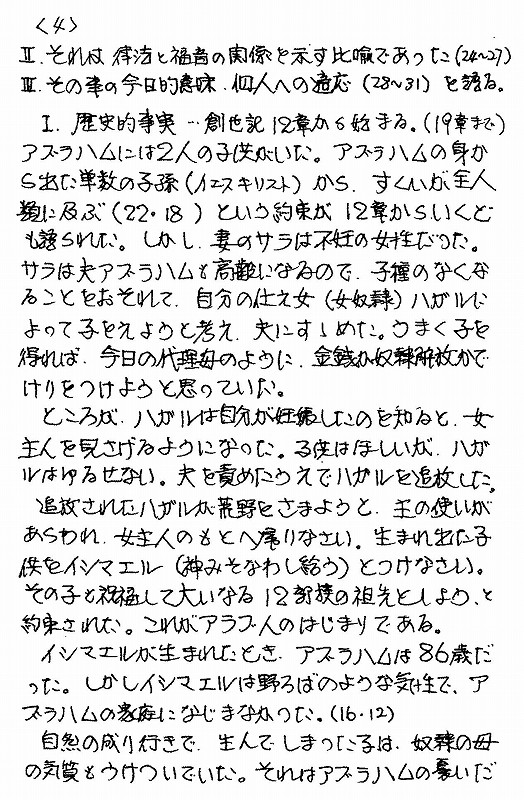 <4>
II. それは 律法と福音の関係を示す比喩であった(24~27)
III. その事の今日的意味. 個人への適応 (28~31) を語る。
I. 歴史的事実 … 創世記12章から始まる。(19章まで)
アブラハムには2人の子供がいた。アブラハムの身か
ら出た単数の子孫(イエスキリスト)から、すくいが全人
類に及ぶ(22・18) という約束が 12章からいくど
も語られた。しかし、妻のサラは不妊の女性だった。
サラは夫アブラハムも高齢になるので、子種のなくな
ることをおそれて、自分の仕え女(女奴隷)ハガルに
よって子をえようと考え、夫にすゝめた。うまく子を
得れば、今日の代理母のように、金銭か奴隷解放かで
けりをつけようと思っていた。
ところが、ハガルは自分が妊娠したのを知ると、女
主人を見さげるようになった。子供はほしいが、ハガ
ルはゆるせない。夫を責めたうえでハガルを追放した。
追放されたハガルが荒野をさまようと、主の使いが
あらわれ、女主人のもとへ帰りなさい。生まれ出た子
供をイシマエル (神みそなわし給う) とつけなさい。
その子を祝福して大いなる12部族の祖先としよう、と
約束された。これがアラブ人のはじまりである。
イシマエルが生まれたとき、アブラハムは86歳だ
った。しかしイシマエルは野ろばのような気性で、ア
ブラハムの家庭になじまなかった。(16・12)
自然の成り行きで、生んでしまった子は、奴隷の母
の気質もうけついでいた。それはアブラハムの憂いだ